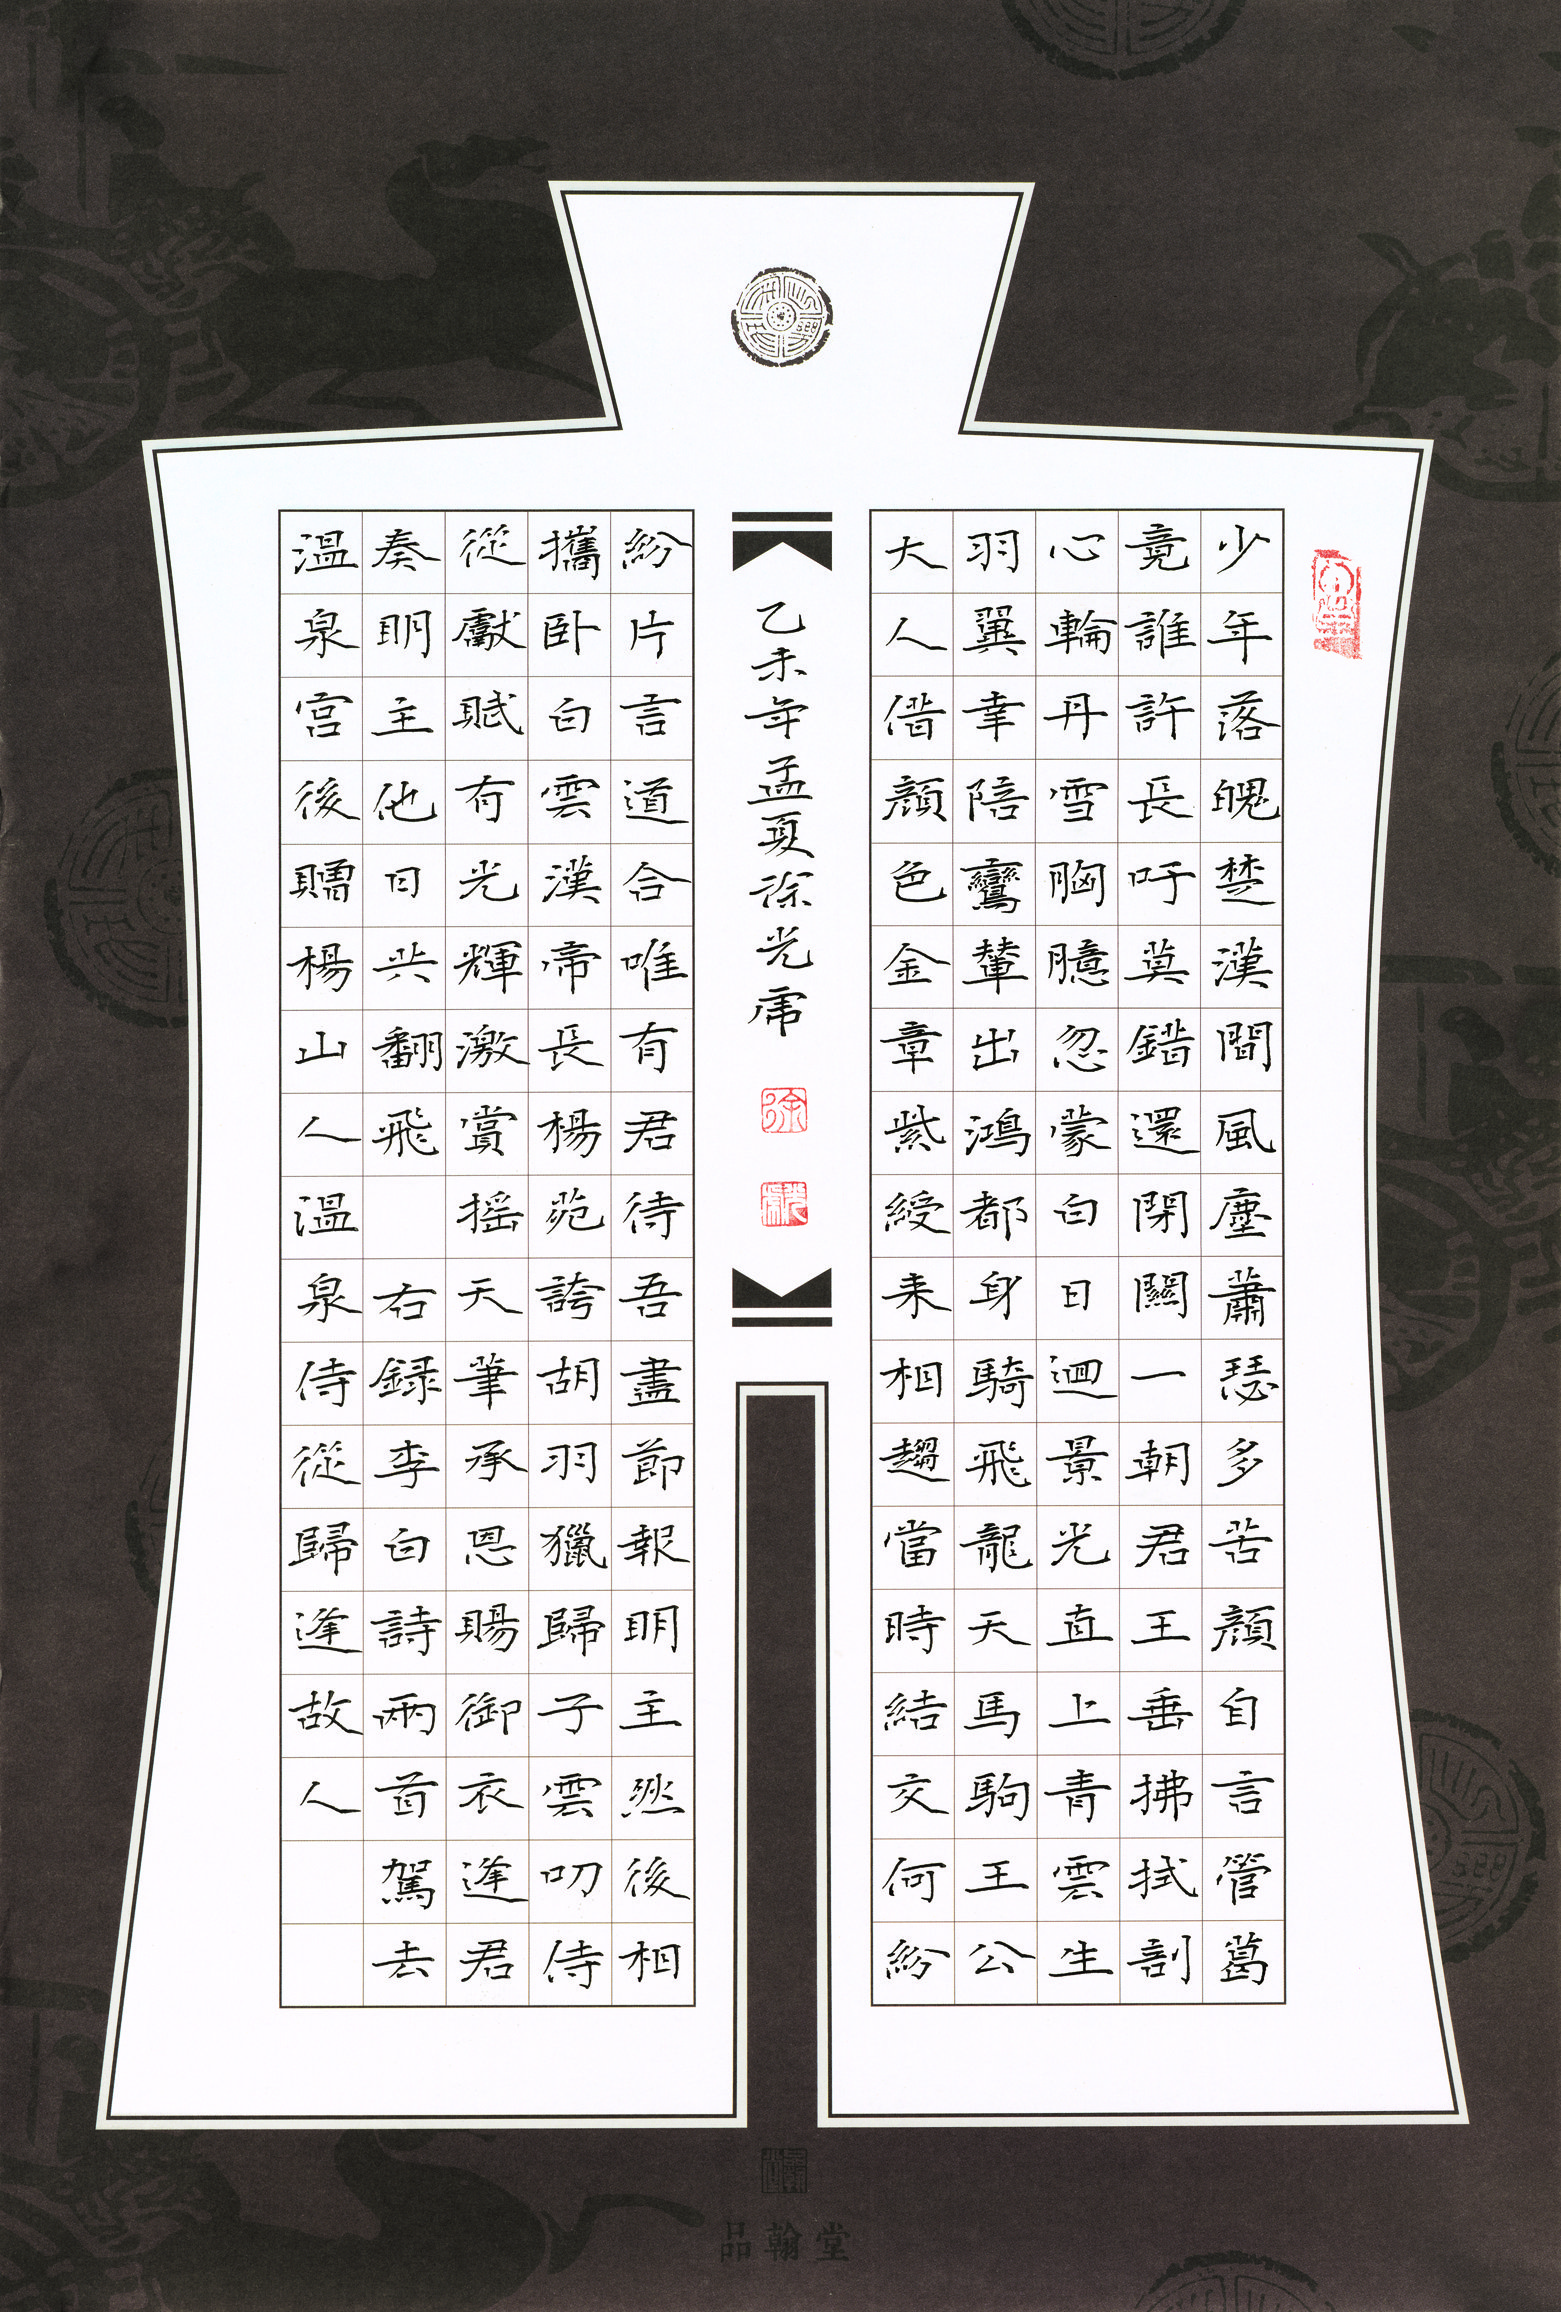 少年落魄楚漢間風塵蕭瑟多苦顏自言管葛
竟誰許長吁莫錯還閉關一朝君王垂拂拭剖
心輪丹雪胸臆忽蒙白日迴景光直上青雲生
羽翼幸陪鸞輦出鴻都身騎飛龍天馬駒王公
大人借顏色金章紫綬来相趨當時結交何紛
紛片言道合唯有君待吾盡節報明主然後相
攜卧白雲漢帝長楊苑誇胡羽獵歸子雲叨侍
從獻賦有光輝激賞摇天筆承恩賜御衣逢君
奏明主他日共翻飛 右録李白詩兩首駕去
溫泉宮後贈楊山人溫泉侍從歸逢故人
乙未年孟夏徐光虎
徐
品翰堂